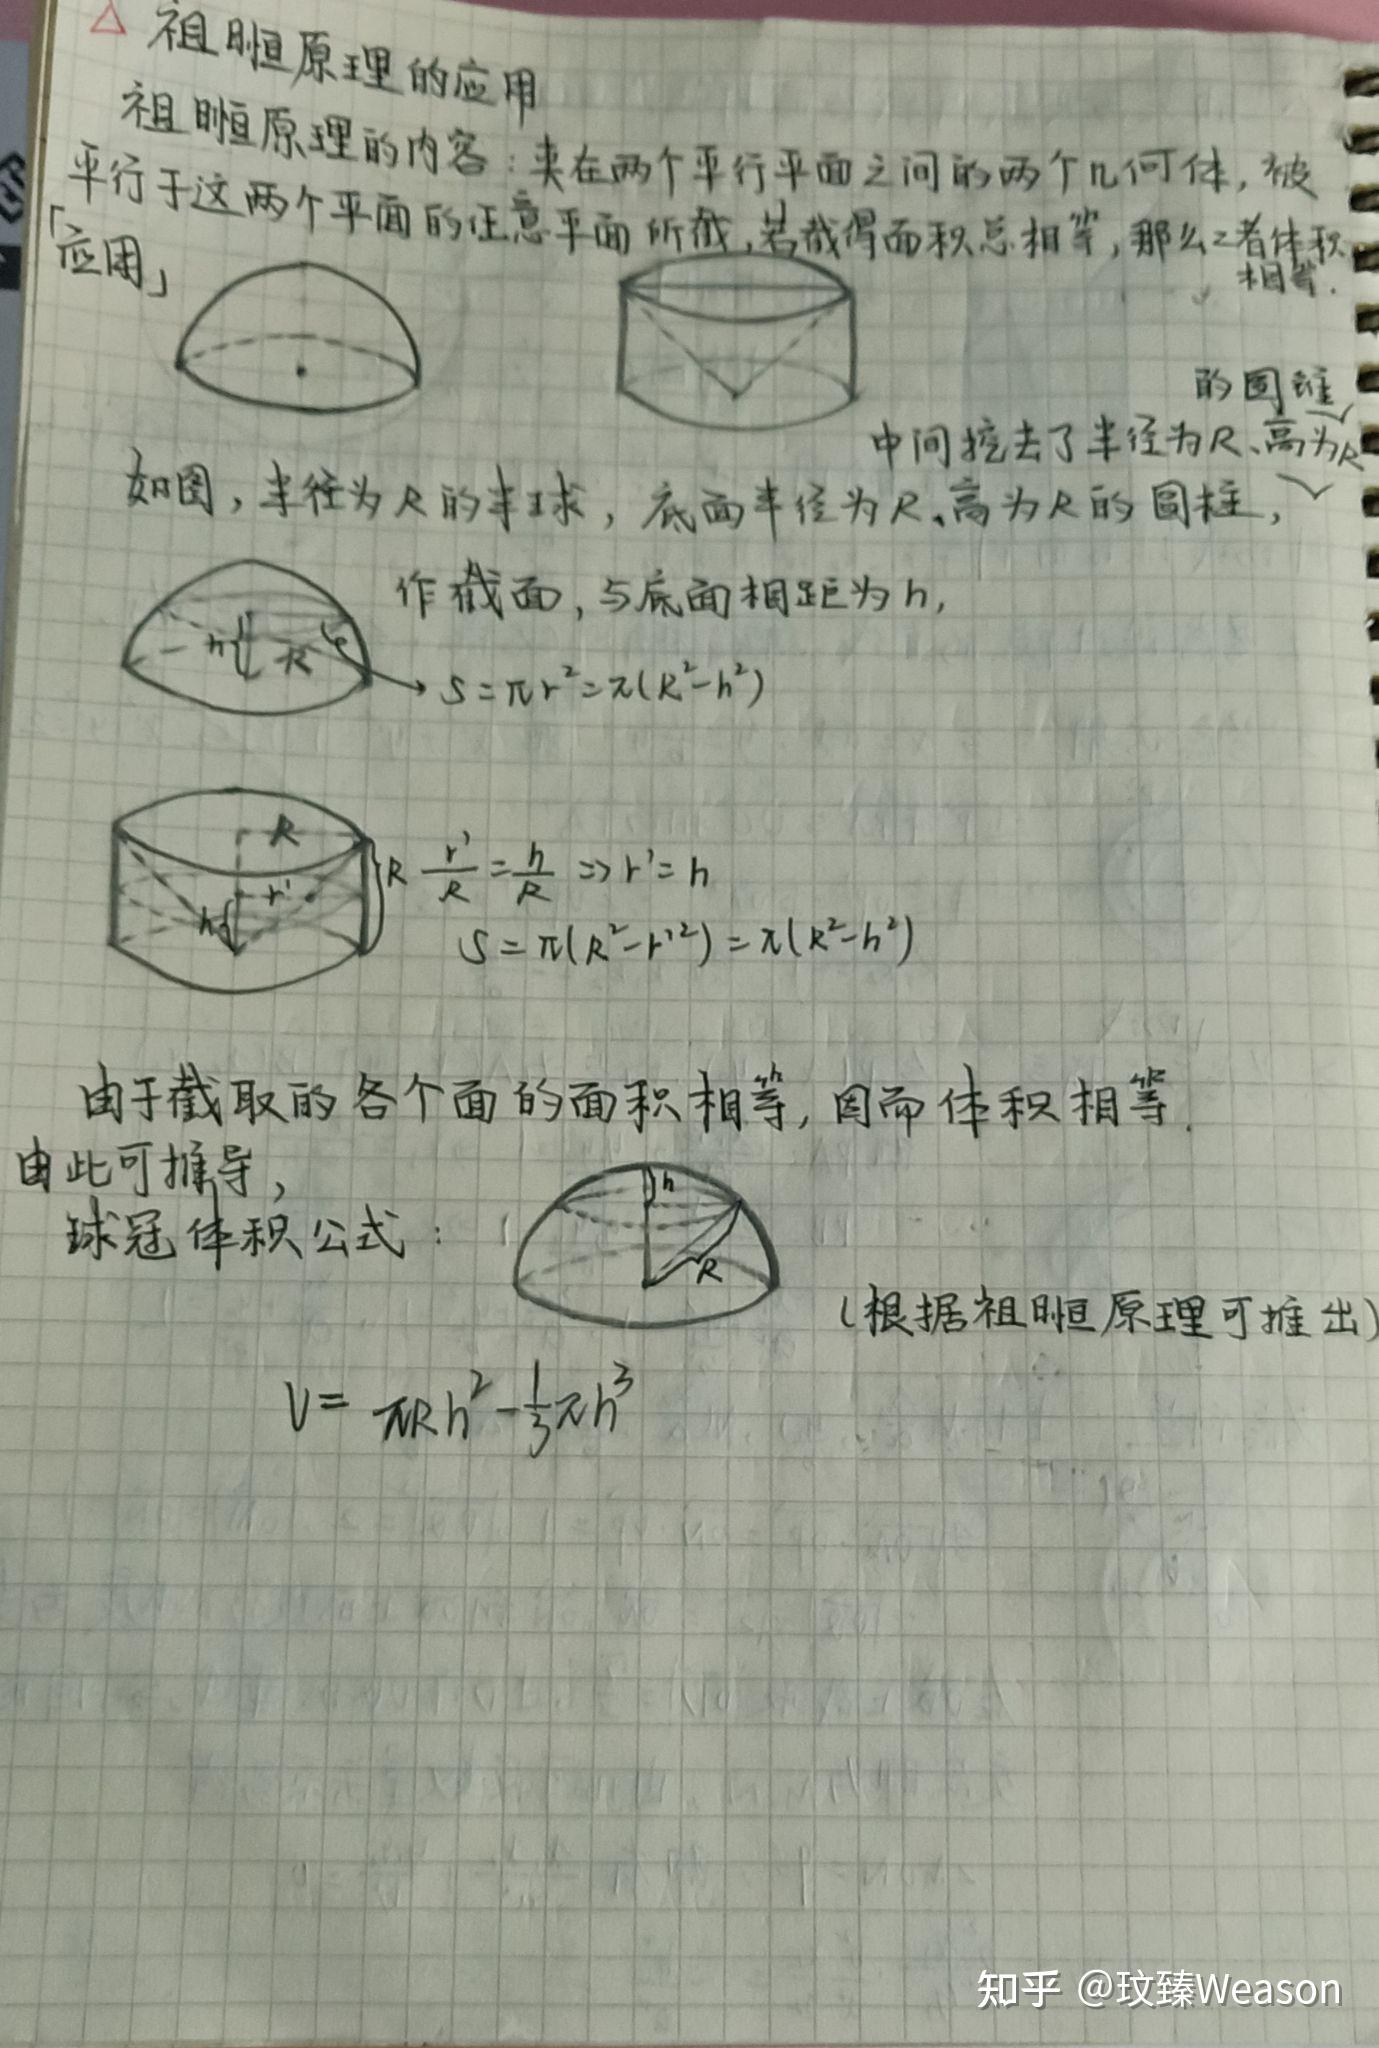 △ 祖暅原理的应用
祖暅原理的内容：夹在两个平行平面之间的两个几何体，被
平行于这两个平面的任意平面所截，若截得面积总相等，那么2者体积
相等.
「应用」
的圆锥
中间挖去了半径为R、高为R
如图，半径为R的半球，底面半径为R、高为R的圆柱，
作截面，与底面相距为h，
h R r
S=πr²=π(R²-h²)
R
R r'/R=h/R => r'=h
r'
h
S=π(R²-r'²)=π(R²-h²)
由于截取的各个面的面积相等，因而体积相等.
由此可推导，
h
球冠体积公式：
R
(根据祖暅原理可推出)
V= πRh²-1/3πh³
知乎 @玟臻Weason